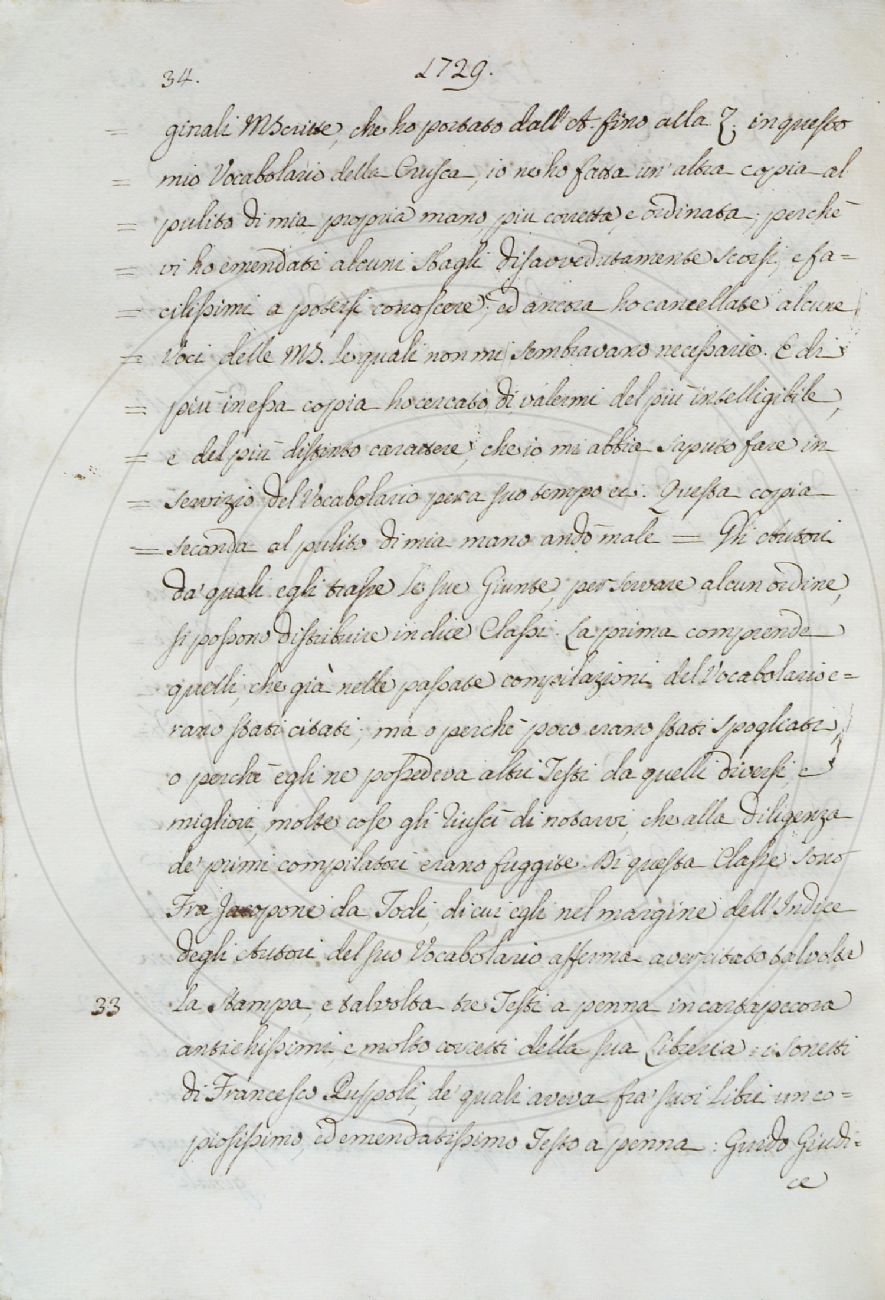 34. 1729.
= ginali MScritte, che ho portato dall'A. fino alla Z. in questo
= mio Vocabolario della Crusca, io ne ho fatta un'altra copia al
= pulito di mia propria mano, più corretta, e ordinata; perchè
= vi ho emendati alcuni sbagli disavvedutamente scorsi, e fa=
= cilissimi a potersi conoscere; ed ancora ho cancellate alcune
= Voci delle MS. le quali non mi sembravano necessarie. E di
= più in essa copia ho cercato di valermi del più intelligibile,
= e del più distinto carattere, che io mi abbia saputo fare in
= servizio del Vocabolario per a suo tempo ec. Questa copia
= seconda al pulito di mia mano andò male = Gli Autori
da' quali egli trasse le sue Giunte, per servare alcun ordine,
si possono distribuire in dice Classi. La prima comprende
quelli, che già nelle passate compilazioni del Vocabolario e=
rano stati citati; ma o perchè poco erano stati spogliati,
o perchè egli ne possedeva altri Testi da quelli diversi, e
migliori, molte cose gli riuscì di notarvi, che alla diligenza
de' primi compilatori erano fuggite. Di questa Classe sono
Fra Jacopone da Todi, di cui egli nel margine dell'Indice
degli Autori del suo Vocabolario afferma aver citato talvolta
33 la Stampa, e talvolta tre Testi a penna in cartapecora
antichissimi, e molto corretti della sua Libreria: i Sonetti
di Francesco Ruspoli, de' quali aveva fra' suoi Libri un co=
piosissimo, ed emendatissimo Testo a penna: Guido Giudi=
ce